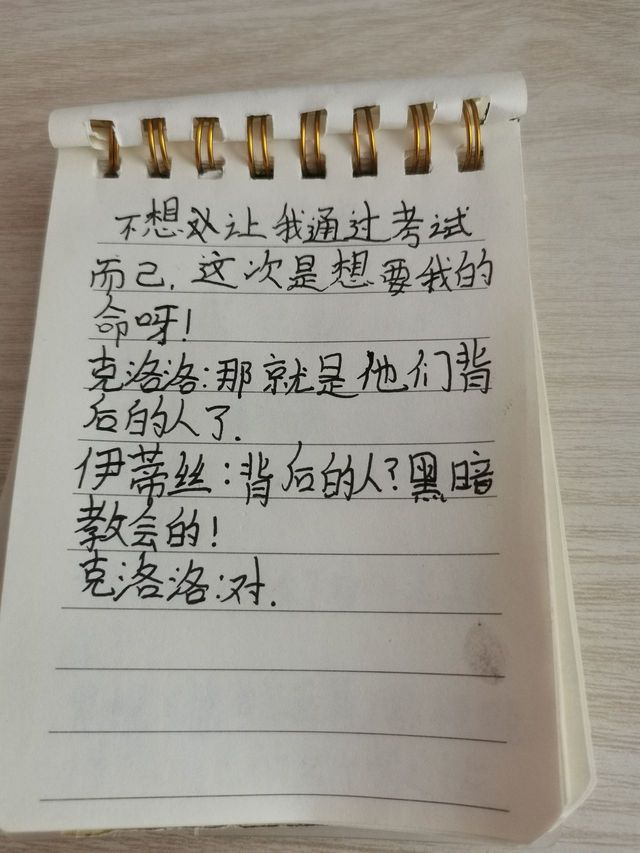 不想让我通过考试
而己.这次是想要我的
命呀!
克洛洛:那就是他们背
后的人了.
伊蒂丝:背后的人?黑暗
教会的!
克洛洛:对.